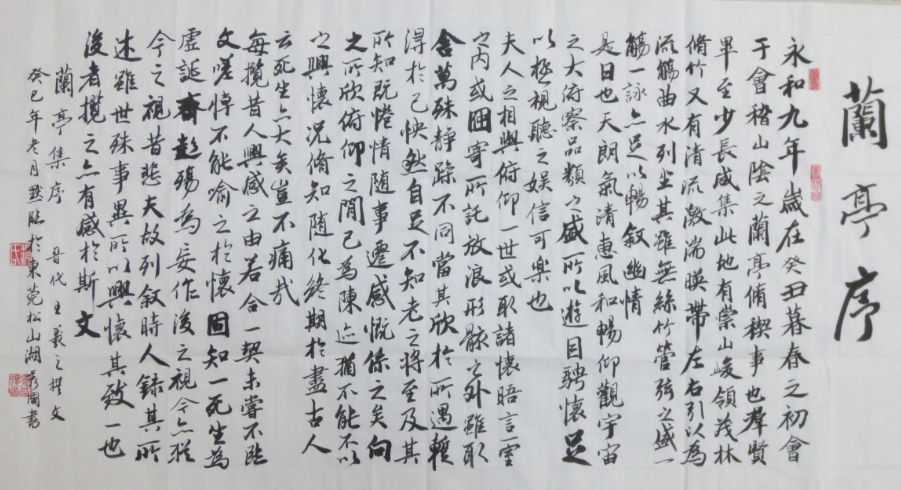 蘭亭序
永和九年歲在癸丑暮春之初會
于會稽山陰之蘭亭脩稧事也羣賢
畢至少長咸集此地有崇山峻領茂林
脩竹又有清流激湍暎帶左右引以為
流觴曲水列坐其雖無絲竹管弦之盛一
觴一詠亦足以暢叙幽情
是日也天朗氣清惠風和暢仰觀宇宙
之大俯察品類之盛所以遊目騁懷足
以極視聽之娱信可樂也
夫人之相與俯仰一世或取諸懷晤言一室
之内或因寄所託放浪形骸之外雖取
舍萬殊靜躁不同當其欣於所遇輕
得於己怏然自足不知老之將至及其
所知既惓情随事遷感慨係之矣向
之所欣俯仰之間已為陳迹猶不能不以
之興懷況脩知随化終期於盡古人
云死生亦大矣豈不痛哉
每攬昔人興感之由若合一契未嘗不臨
文嗟悼不能喻之於懷固知一死生為
虚誕齊彭殤為妄作後之視今亦猶
今之視昔悲夫故列叙時人録其所
述雖世殊事異所以興懷其致一也
後者攬之亦有感於斯文
蘭亭集序 晉代王羲之撰文
癸巳年冬月 臨於東莞松山湖 國書